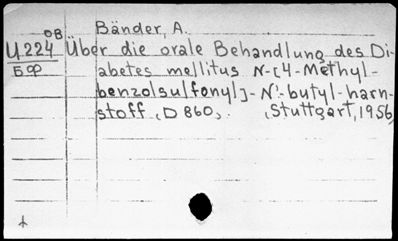 Bänder, A.
OB
U 224 Über die orale Behandlung des Di-
abetes mellitus N-[4-Methyl-
benzolsulfonyl]-N'-butyl-harn-
stoff (D 860). Stuttgart, 1956